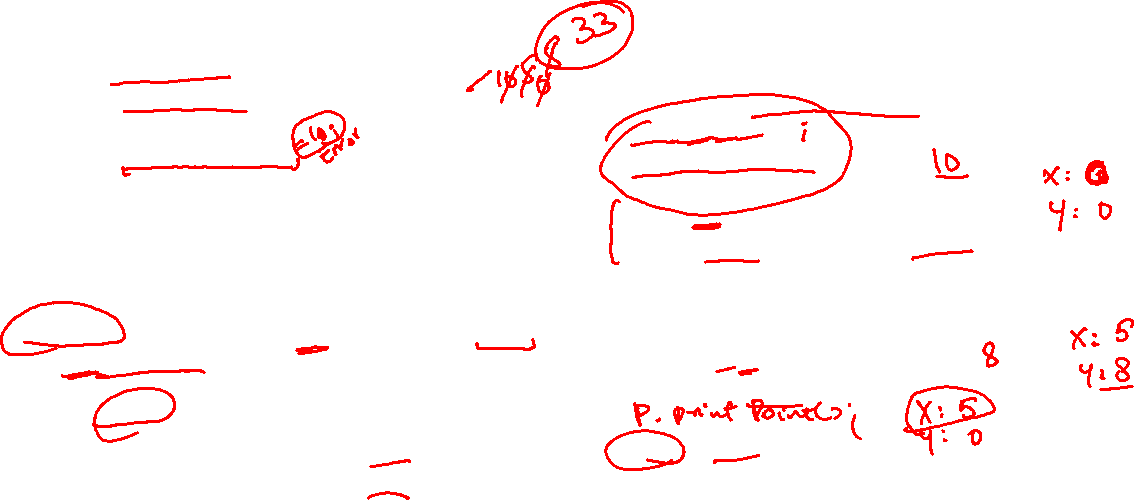 33
= 10;
Error
i
10
x:
y: 0
x: 5
y: 8
8
P. print Point();
x: 5
y: 0